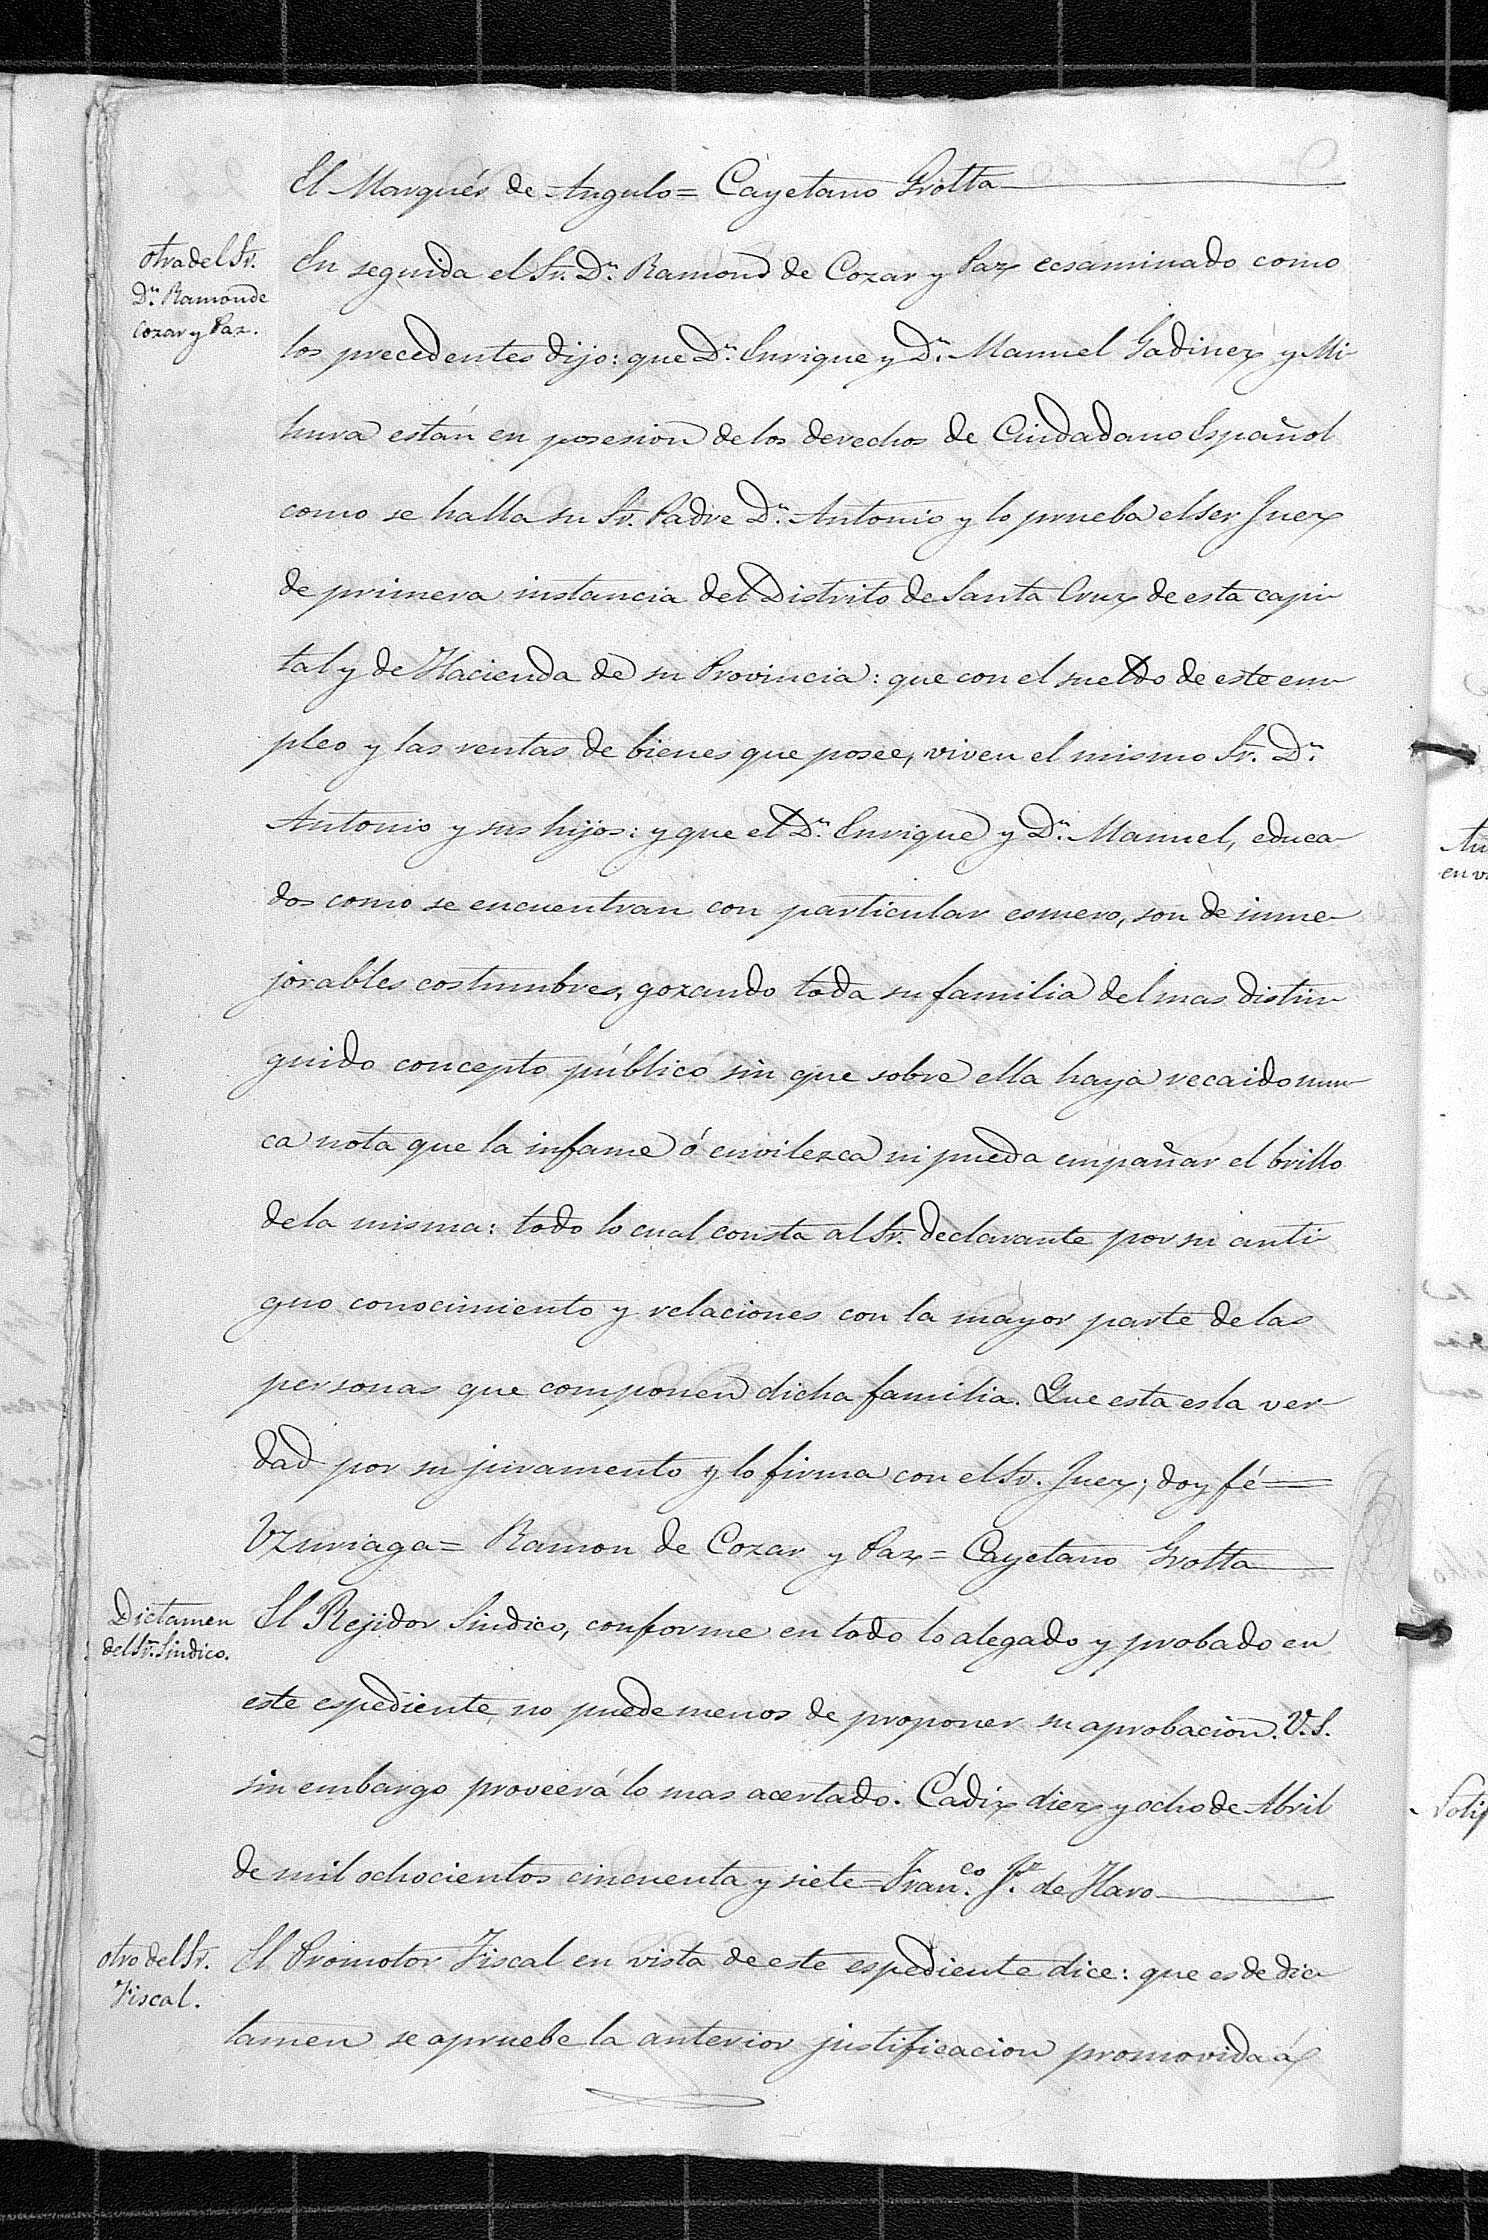 El Marqués de Angulo = Cayetano Grotta
otra del Sr.
Dn. Ramon de
Cozar y Paz.
En seguida el Sr. Dn. Ramon de Cozar y Paz ecsaminado como
los precedentes dijo: que Dn. Enrique y Dn. Manuel Gadinez y Mi-
hura están en posesion de los derechos de Ciudadano Español
como se halla su Sr. Padre Dn. Antonio y lo prueba el ser Juez
de primera instancia del Distrito de Santa Cruz de esta capi-
tal y de Hacienda de su Provincia: que con el sueldo de este em-
pleo y las rentas de bienes que posee, viven el mismo Sr. Dn.
Antonio y sus hijos: y que el Dn. Enrique y Dn. Manuel, educa-
dos como se encuentran con particular esmero, son de inme-
jorables costumbres, gozando toda su familia del mas distin-
guido concepto público sin que sobre ella haya recaido nun-
ca nota que la infame ó envilezca ni pueda empañar el brillo
de la misma: todo lo cual consta al Sr. declarante por su anti-
guo conocimiento y relaciones con la mayor parte de las
personas que componen dicha familia. Que esta es la ver-
dad por su juramento y lo firma con el Sr. Juez; doy fé
Uzuriaga = Ramon de Cozar y Paz = Cayetano Grotta
Dictamen
del Sr. Sindico.
El Rejidor Sindico, conforme en todo lo alegado y probado en
este espediente, no puede menos de proponer su aprobacion. V.S.
sin embargo proveerá lo mas acertado. Cádiz diez y ocho de Abril
de mil ochocientos cincuenta y siete = Franco. Jr. de Haro
otro del Sr.
Fiscal.
El Promotor Fiscal en vista de este espediente dice: que es de dic-
tamen se apruebe la anterior justificacion promovida á